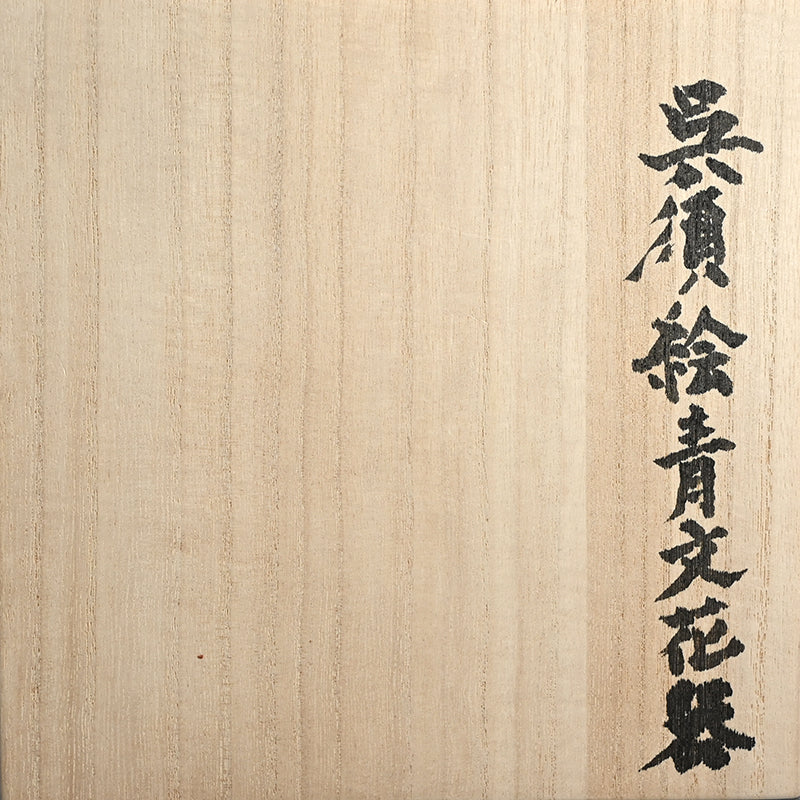 呉須絵青文花器